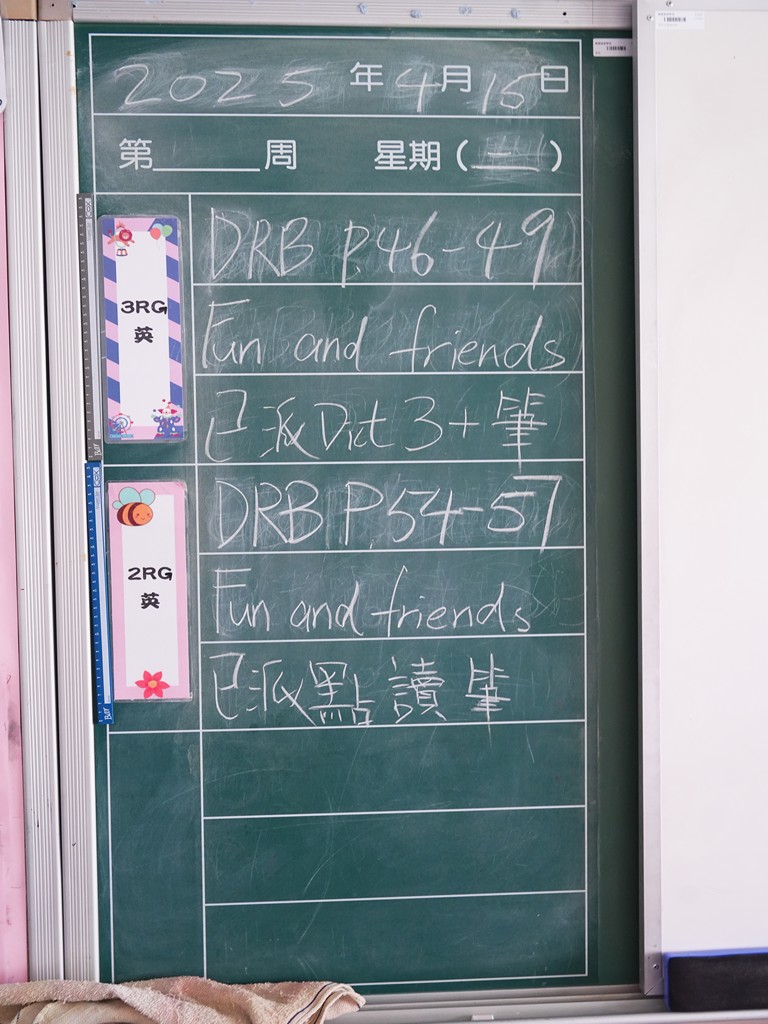 2025 年 4 月 15 日
第_____周 星期(二)
3RG
英
DRB P.46-49
Fun and friends
已派 Dict 3 + 筆
2RG
英
DRB P.54-57
Fun and friends
已派點讀筆